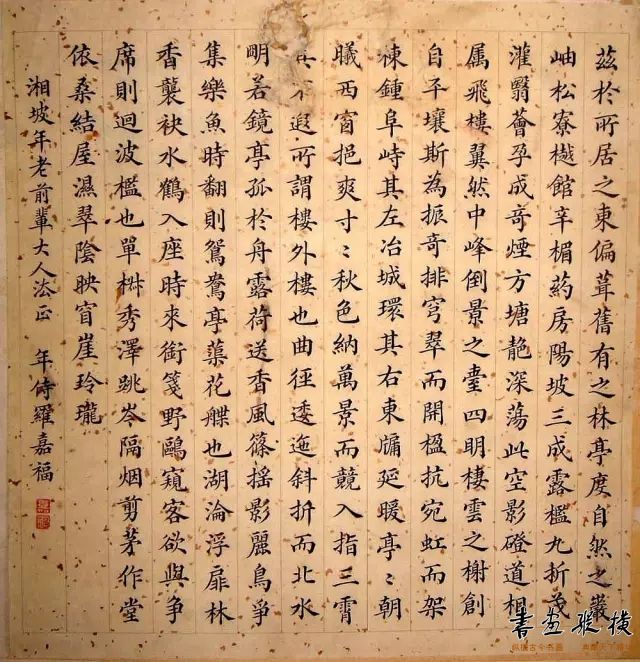 茲於所居之東偏葺舊有之林亭度自然之巖
岫松寮樾館辛楣葯房陽坡三成露檻九折茂
灌翳薈孕成奇煙方塘靘深蕩此空影磴道相
属飛樓翼然中峰倒景之臺四明棲雲之榭創
自平壤斯為振奇排穹翠而開楹抗宛虹而架
棟鍾阜峙其左冶城環其右東牖延暖亭〻朝
曦西窗挹爽寸〻秋色納萬景而競入指三霄
不遐所謂樓外樓也曲徑逶迤斜折而北水
明若鏡亭孤於舟露荷送香風篠搖影麗鳥爭
集樂魚時翻則鴛鴦亭蕖花艓也湖淪浮扉林
香襲袂水鶴入座時來銜箋野鷗窺客欲與爭
席則迴波檻也單椒秀澤跳岑隔烟剪茅作堂
依桑結屋濕翠陰映窗崖玲瓏
湘坡年老前輩大人法正 年侍羅嘉福
書画縱横